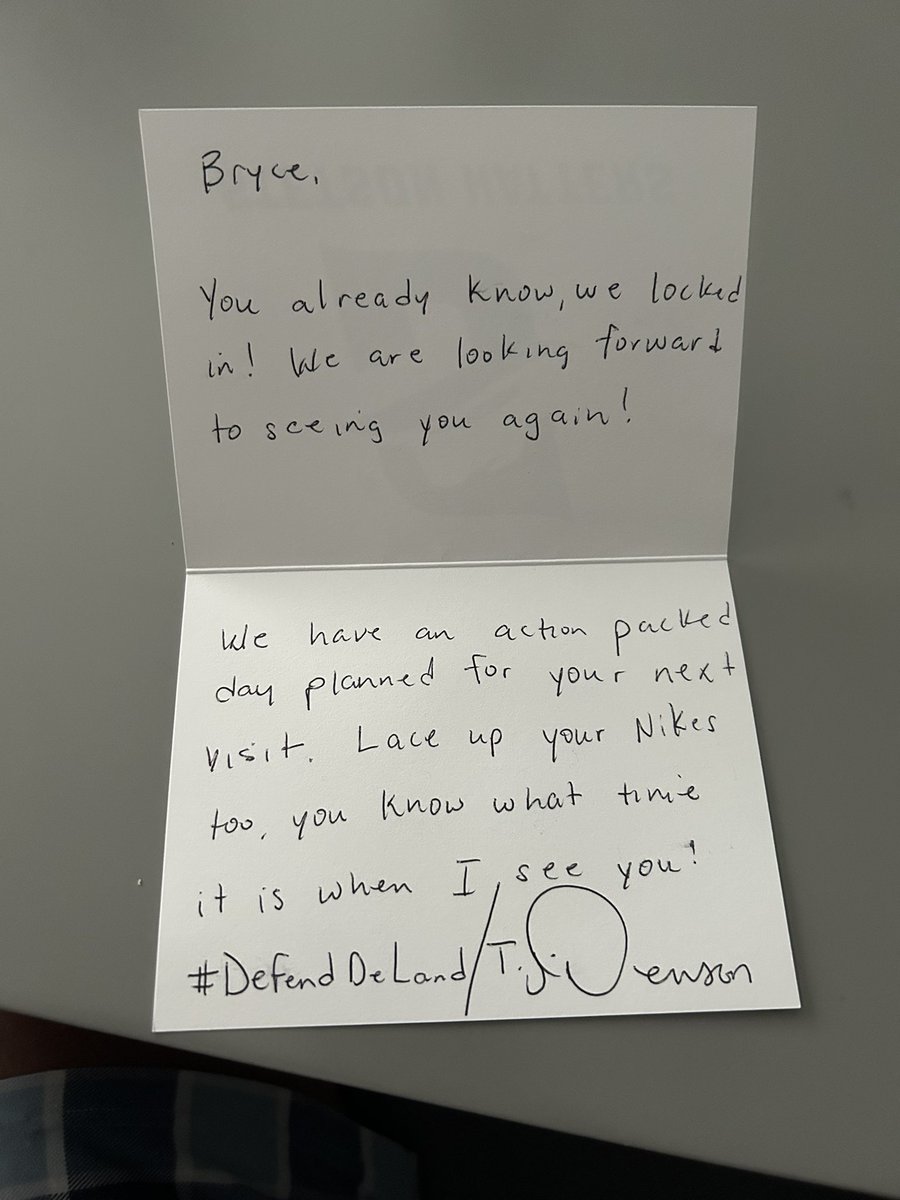 Bryce,
You already know, we locked
in! We are looking forward
to seeing you again!
We have an action packed
day planned for your next
visit. Lace up your Nikes
too, you know what time
it is when I see you!
#DefendDeLand/T.J. Jenson